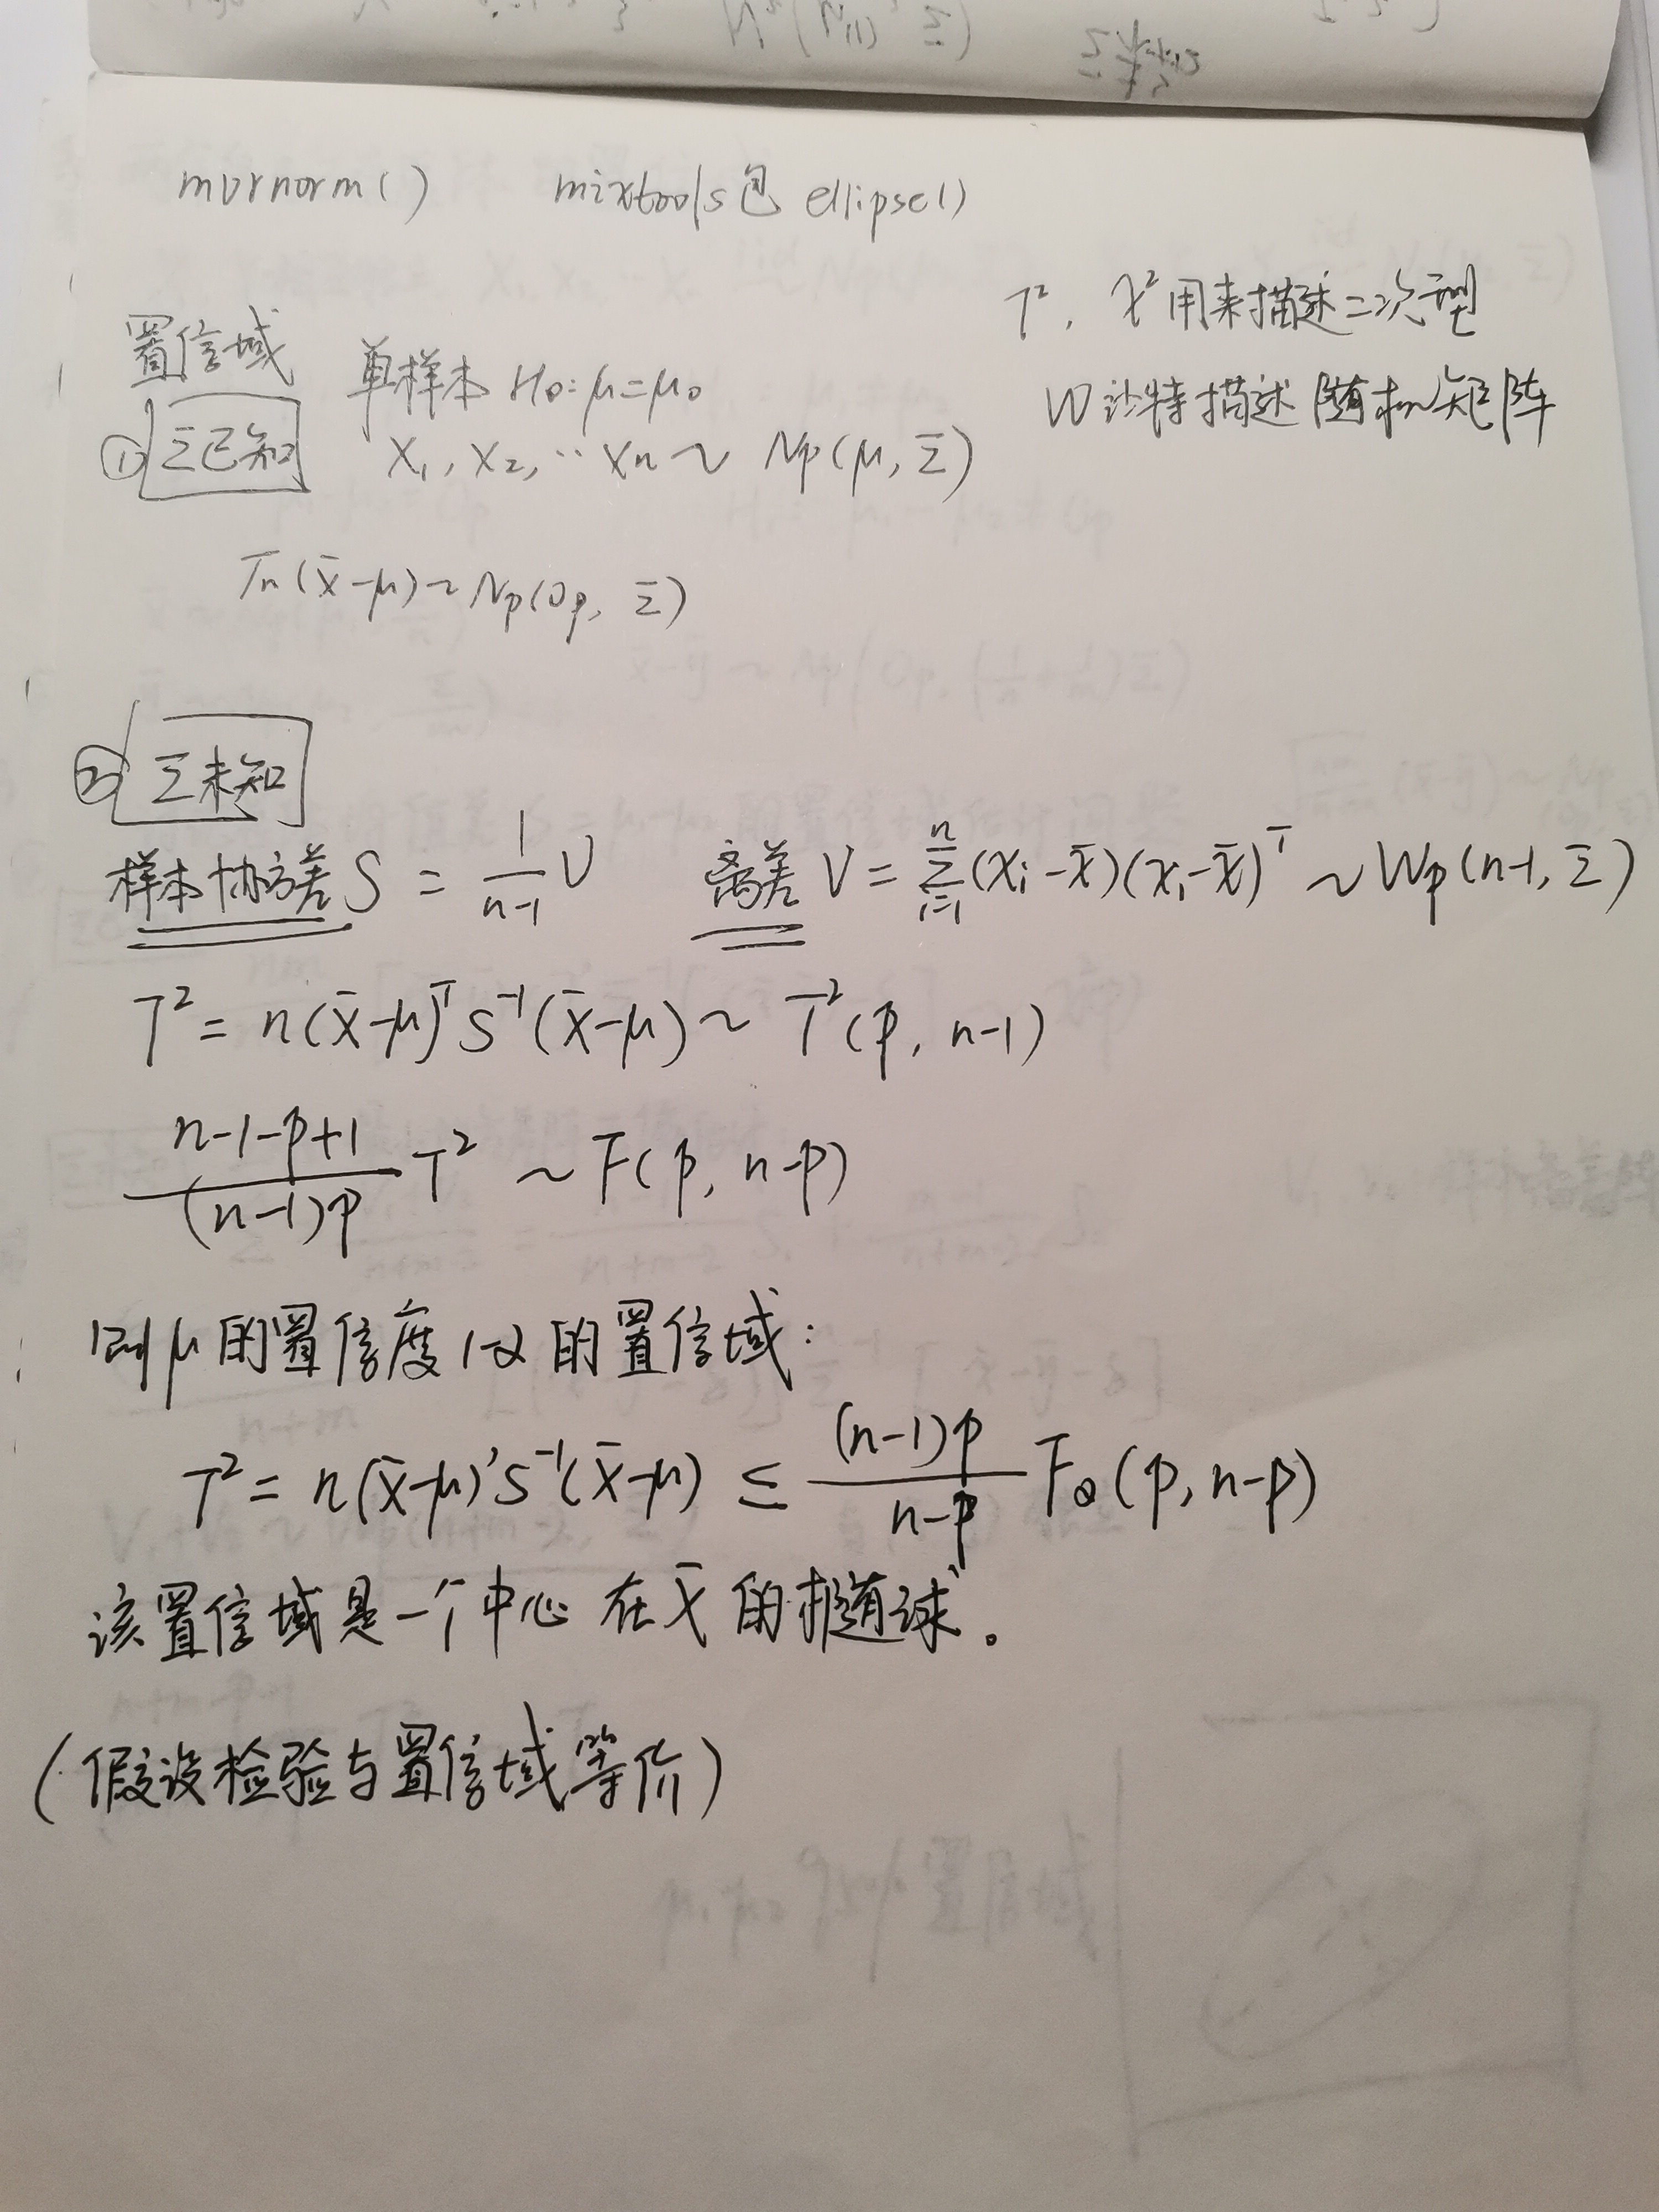 mvrnorm() mixtools包 ellipse()
T², χ²用来描述二次型
W沙特描述随机矩阵
置信域 单样本 H₀: μ=μ₀
① Σ已知 X₁, X₂, ⋯ Xn ~ Np(μ, Σ)
√n(x̄-μ) ~ Np(0p, Σ)
② Σ未知
样本协方差 S = 1/(n-1) V 离差 V = Σᵢ₌₁ⁿ(xᵢ-x̄)(xᵢ-x̄)ᵀ ~ Wp(n-1, Σ)
T² = n(x̄-μ)ᵀS⁻¹(x̄-μ) ~ T²(p, n-1)
(n-1-p+1)/((n-1)p) T² ~ F(p, n-p)
则μ的置信度1-α的置信域:
T² = n(x̄-μ)'S⁻¹(x̄-μ) ≤ (n-1)p/(n-p) Fα(p, n-p)
该置信域是一个中心在x̄的椭球。
(假设检验与置信域等价)